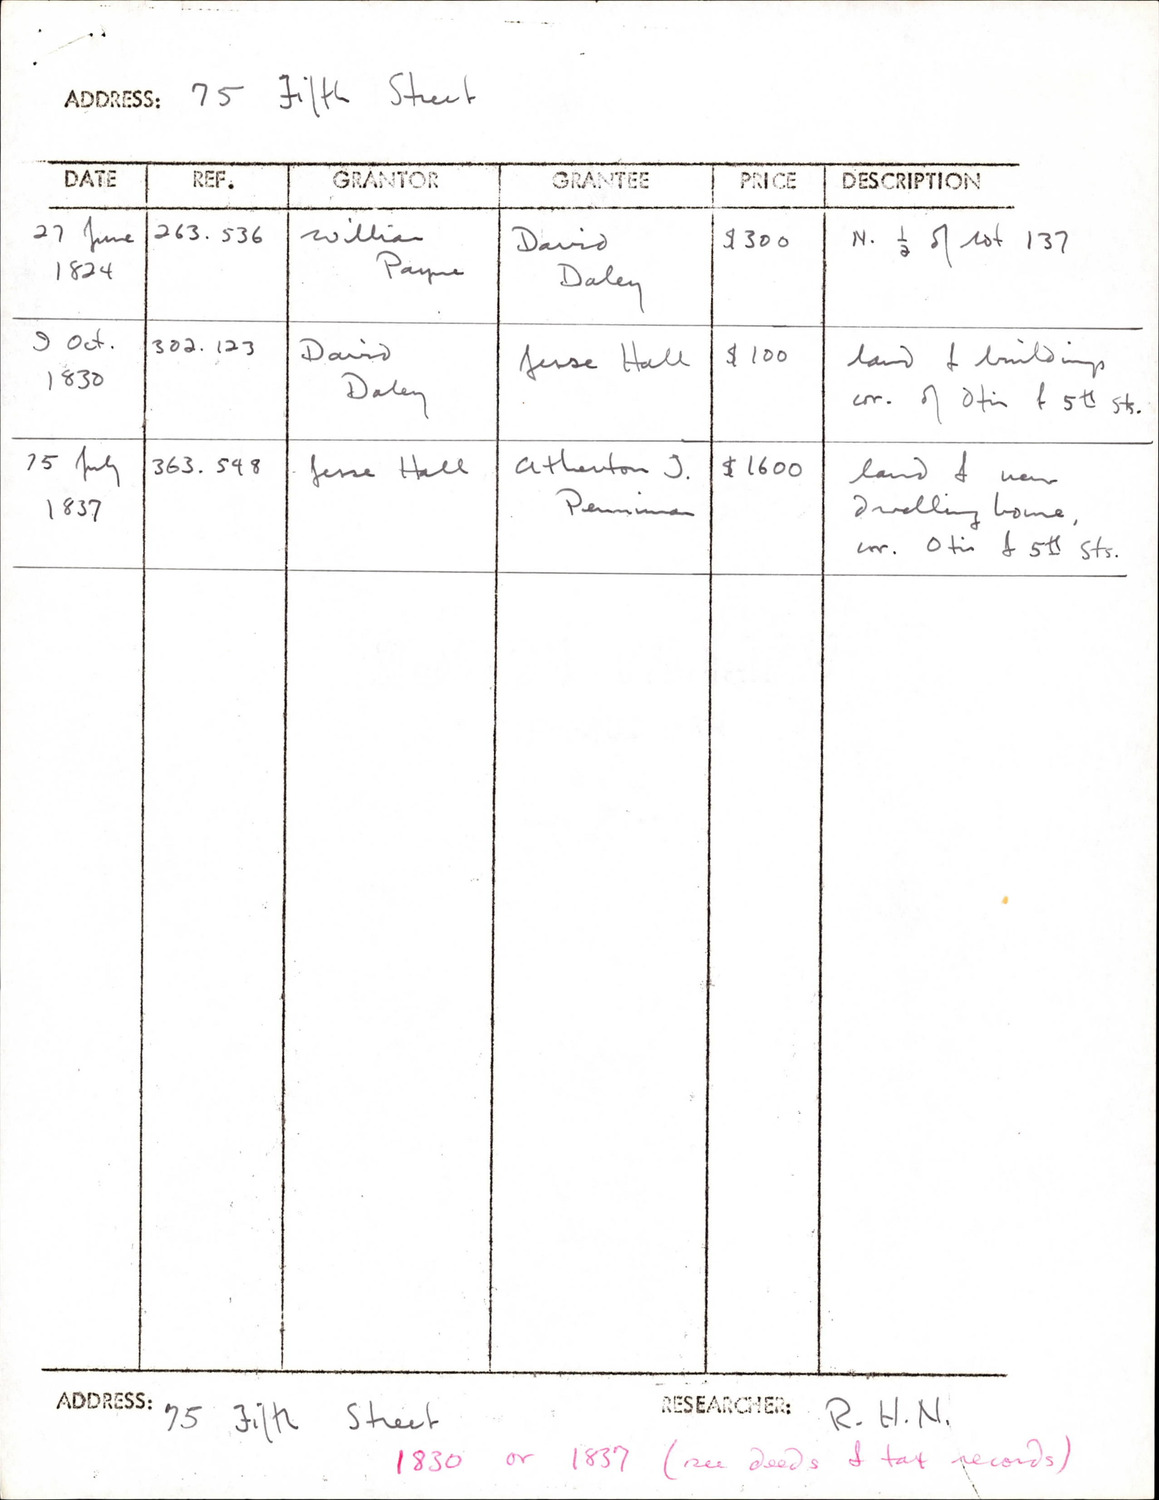 ADDRESS: 75 Fifth Street
DATE REF. GRANTOR GRANTEE PRICE DESCRIPTION
27 June 1824 263.536 William Payne David Daley $300 N. ½ of lot 137
9 Oct. 1830 302.123 David Daley Jesse Hall $100 land & buildings cor. of Otis & 5th Sts.
15 July 1837 363.548 Jesse Hall Atherton J. Penniman $1600 land & new dwelling house, cor. Otis & 5th Sts.
ADDRESS: 75 Fifth Street RESEARCHER: R.H.N.
1830 or 1837 (see deeds & tax records)